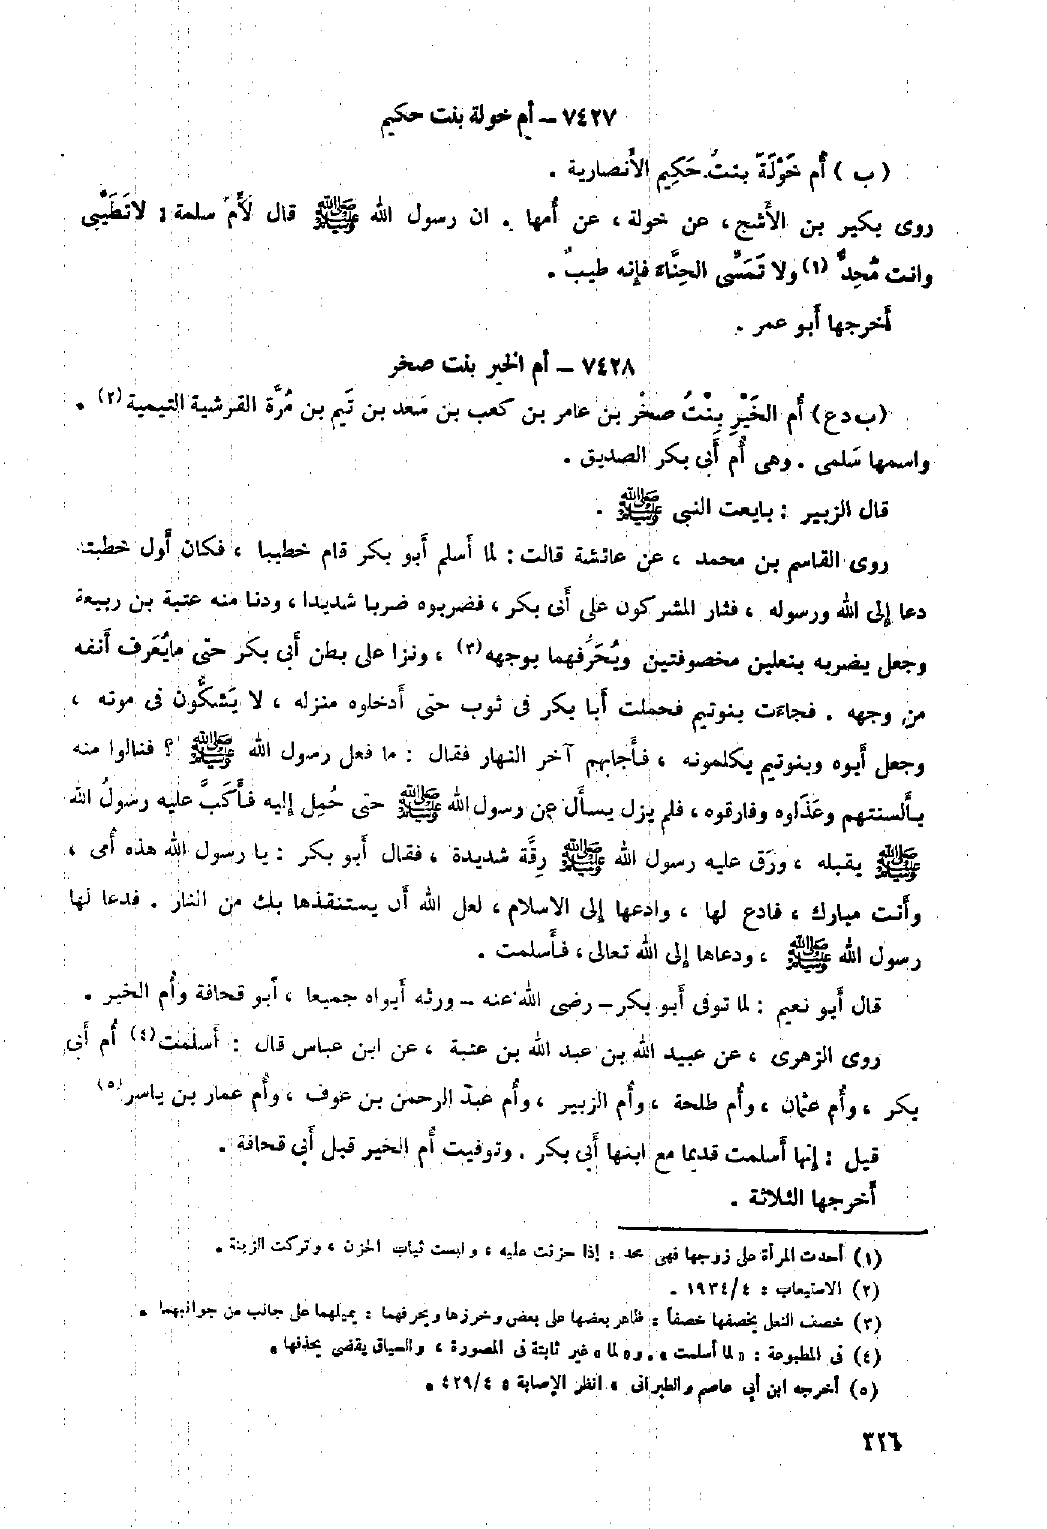 ٧٤٢٧ – أم خولة بنت حكيم
(ب) أُم خَوْلَةَ بنتُ حَكِيم الأَنصارية .
روى بكير بن الأَشج، عن خولة، عن أُمها . ان رسول الله ﷺ قال لأُم سلمة : لاتَطَيَّبى
وانت مُحِدٌّ (١) ولا تَمَسِّى الحِنَّاءَ فإنه طيبٌ .
أَخرجها أَبو عمر .
٧٤٢٨ – أم الخير بنت صخر
(ب دع) أُم الخَيْرِ بِنْتُ صخْر بن عامر بن كعب بن سَعد بن تَيم بن مُرَّة القرشية التيمية (٢) .
واسمها سَلمى . وهى أُم أَبى بكر الصديق .
قال الزبير : بايعت النبى ﷺ .
روى القاسم بن محمد ، عن عائشة قالت : لما أسلم أَبو بكر قام خطيبا ، فكان أَول خطبته
دعا إلى الله ورسوله ، فثار المشركون على أَبى بكر، فضربوه ضربا شديدا، ودنا منه عتبة بن ربيعة
وجعل يضربه بنعلين مخصوفتين ويُحَرِّفهما بوجهه (٣) ، ونزا على بطن أَبى بكر حتى مايُعَرف أَنفه
من وجهه . فجاءَت بنوتيم فحملت أَبا بكر فى ثوب حتى أَدخلوه منزله ، لا يَشكُّون فى موته ،
وجعل أَبوه وبنوتيم يكلمونه ، فأَجابهم آخر النهار فقال : ما فعل رسول الله ﷺ ؟ فنالوا منه
بأَلسنتهم وعَذَلوه وفارقوه، فلم يزل يسأَل عن رسول الله ﷺ حتى حُمِل إليه فأَكَبَّ عليه رسولُ الله
ﷺ يقبله ، ورَق عليه رسول الله ﷺ رِقَّة شديدة ، فقال أَبو بكر : يا رسول الله هذه أُمى ،
وأَنت مبارك ، فادع لها ، وادعها إلى الاسلام، لعل الله أَن يستنقذها بك من النار . فدعا لها
رسول الله ﷺ ، ودعاها إلى الله تعالى، فأَسلمت .
قال أَبو نعيم : لما توفى أَبو بكر – رضى الله عنه – ورثه أَبواه جميعا ، أَبو قحافة وأُم الخير .
روى الزهرى ، عن عبيد الله بن عبد الله بن عتبة ، عن ابن عباس قال : أَسلمت (٤) أُم أَبى
بكر ، وأُم عثمان ، وأُم طلحة ، وأُم الزبير ، وأُم عبد الرحمن بن عوف ، وأُم عمار بن ياسر (٥)
قيل : إنها أَسلمت قديما مع ابنها أَبى بكر . وتوفيت أُم الخير قبل أَبى قحافة .
أَخرجها الثلاثة .
(١) أحدت المرأة على زوجها فهى محد : إذا حزنت عليه ، ولبست ثياب الحزن ، وتركت الزينة .
(٢) الاستيعاب : ١٩٣٤/٤ .
(٣) خصف النعل يخصفها خصفاً : ظاهر بعضها على بعض وخرزها ويحرفهما : يميلهما على جانب من جوانبهما .
(٤) فى المطبوعة : «لما أسلمت» . و«لما» غير ثابتة فى المصورة ، والسياق يقضى بحذفها .
(٥) أخرجه ابن أبي عاصم والطبرانى ، انظر الإصابة : ٤٢٩/٤ .
٣٢٦